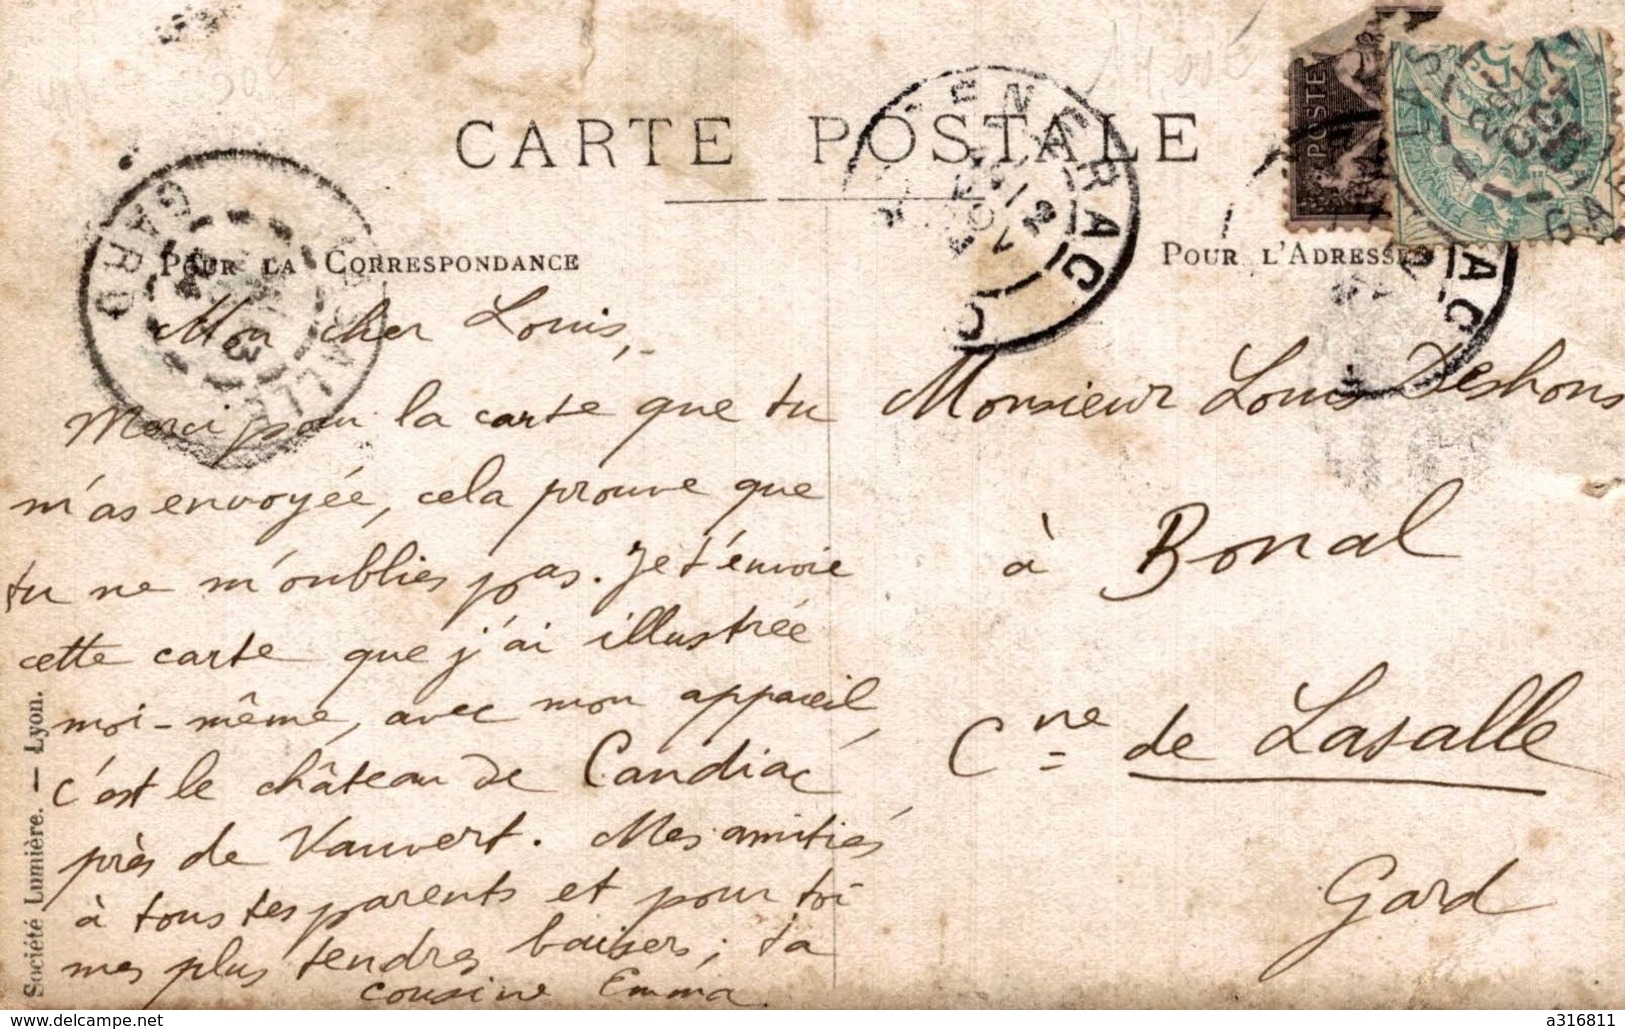 CARTE POSTALE
POUR LA CORRESPONDANCE
Mon cher Louis,
Merci pour la carte que tu
m'as envoyée, cela prouve que
tu ne m'oublies pas. Je t'envoie
cette carte que j'ai illustrée
moi-même, avec mon appareil,
c'est le château de Candiac
près de Vauvert. Mes amitiés
à tous tes parents et pour toi
mes plus tendres baisers; ta
cousine Emma.
Société Lumière. — Lyon.
POUR L'ADRESSE
Monsieur Louis Deshons
à Bonal
Cne de Lasalle
Gard
GÉNÉRAC
GARD
POSTE
a316811